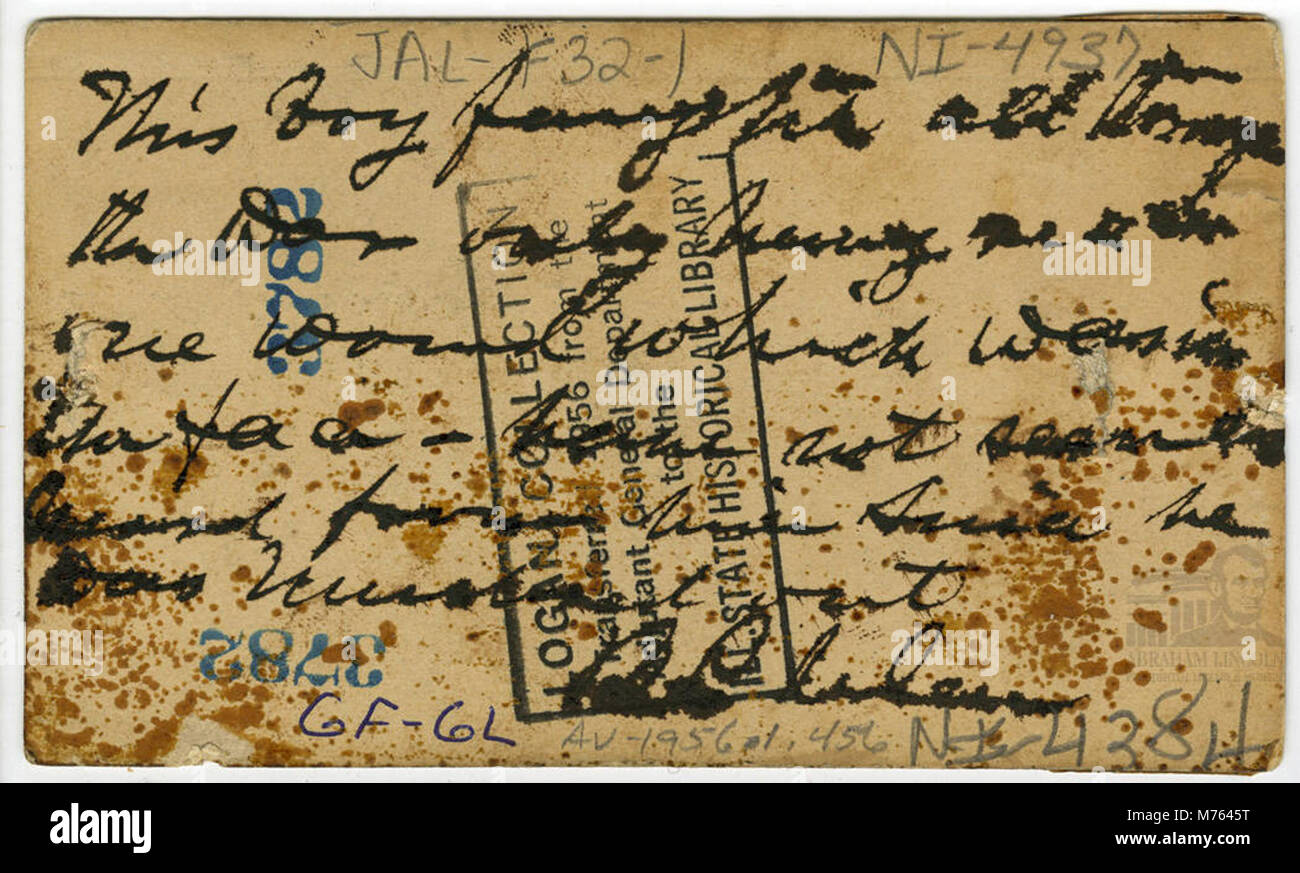 JAL-F32-1 NI-4937
This boy fought all through
the War only having
one wound which was in
the face - have not
heard from him since he
Was Mustered out
3782
3782
LOGAN COLLECTION
Transferred 1956 from the
Adjutant General Department
to the
ILL. STATE HISTORICAL LIBRARY
GF-GL
AV-1956 pt. 456
NI-4384
ABRAHAM LINCOLN
alamy
Image ID: M7645T
www.alamy.com